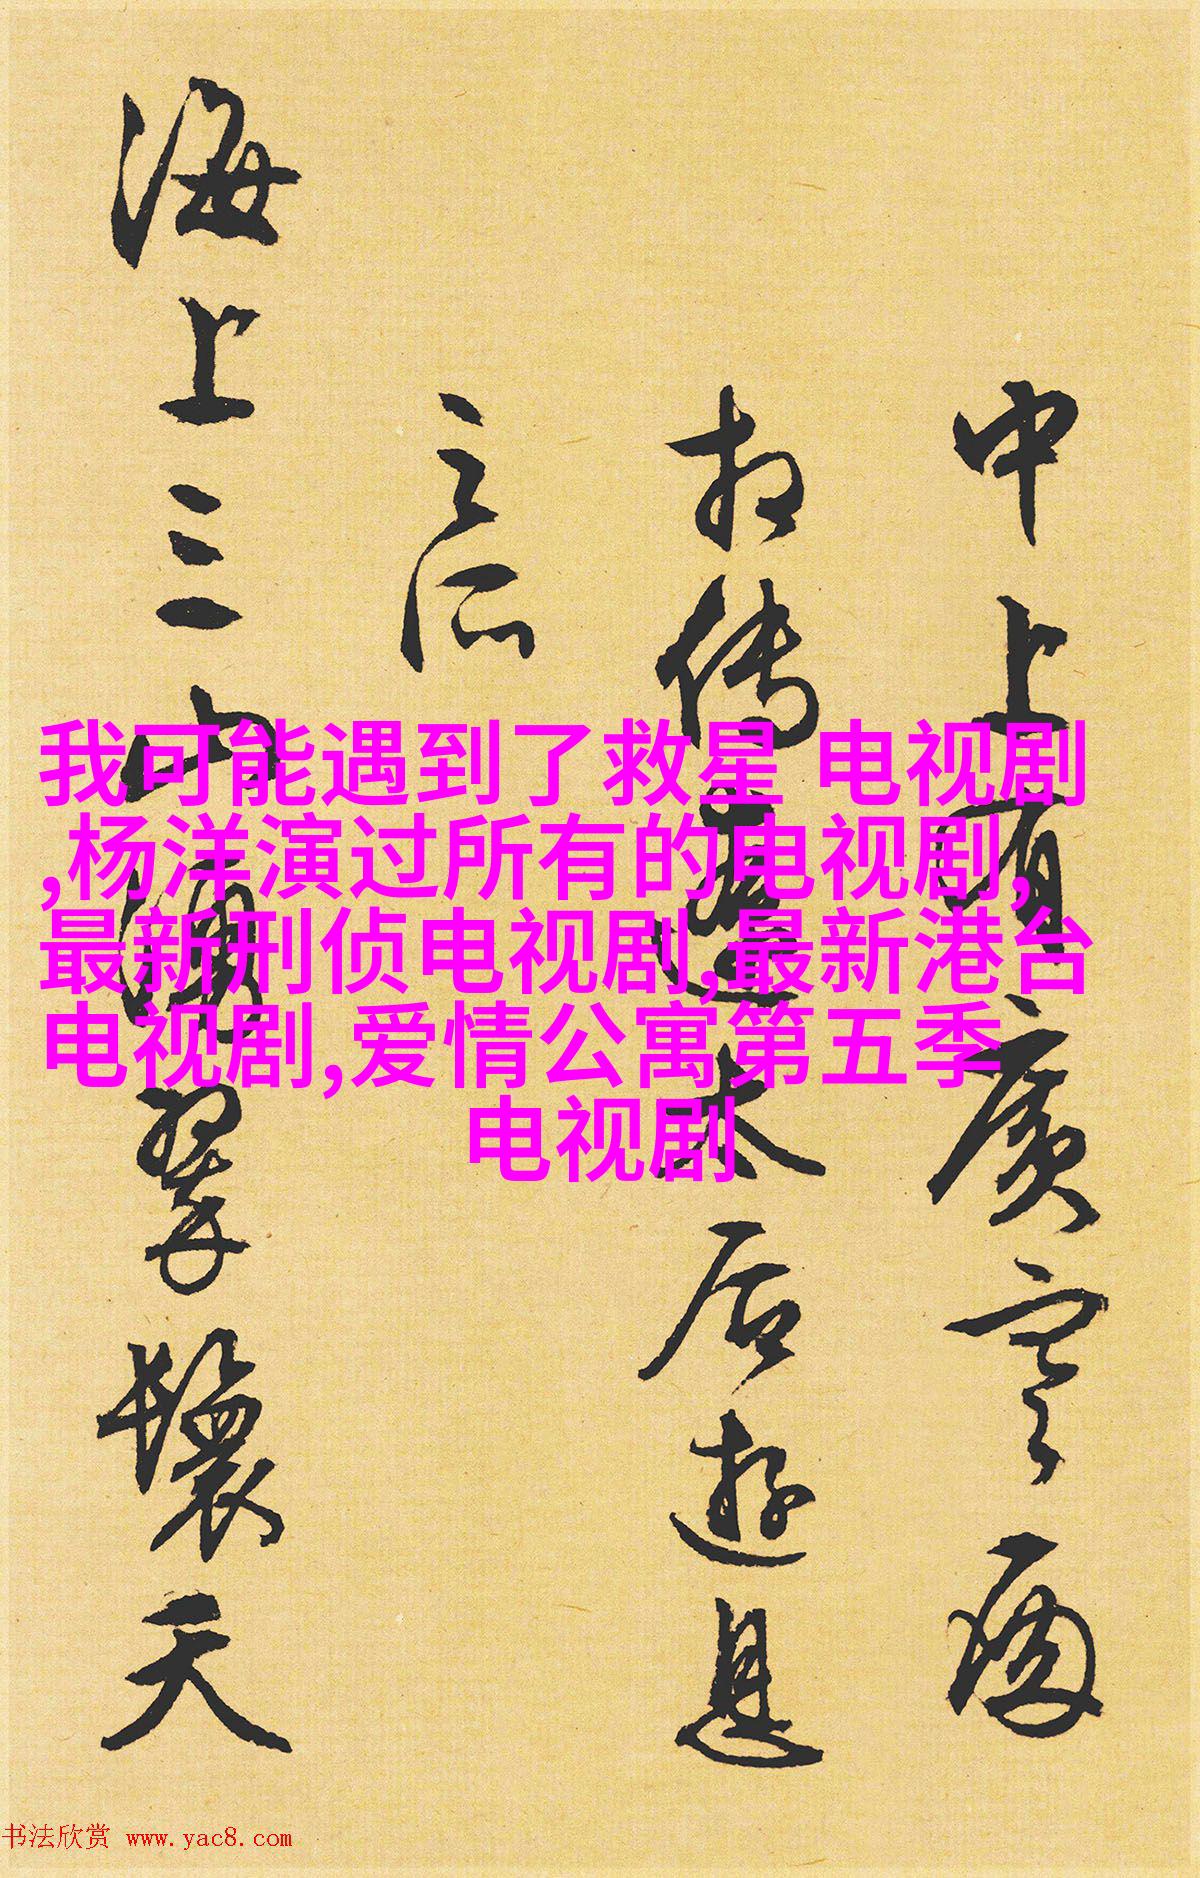 我可能遇到了救星 电视剧
,杨洋演过所有的电视剧,
最新刑侦电视剧,最新港台
电视剧,爱情公寓第五季
电视剧
中上有廣寒
相傳遼太后遊息
之所
海上三山擁翠鬟天
书法欣赏 www.yac8.com